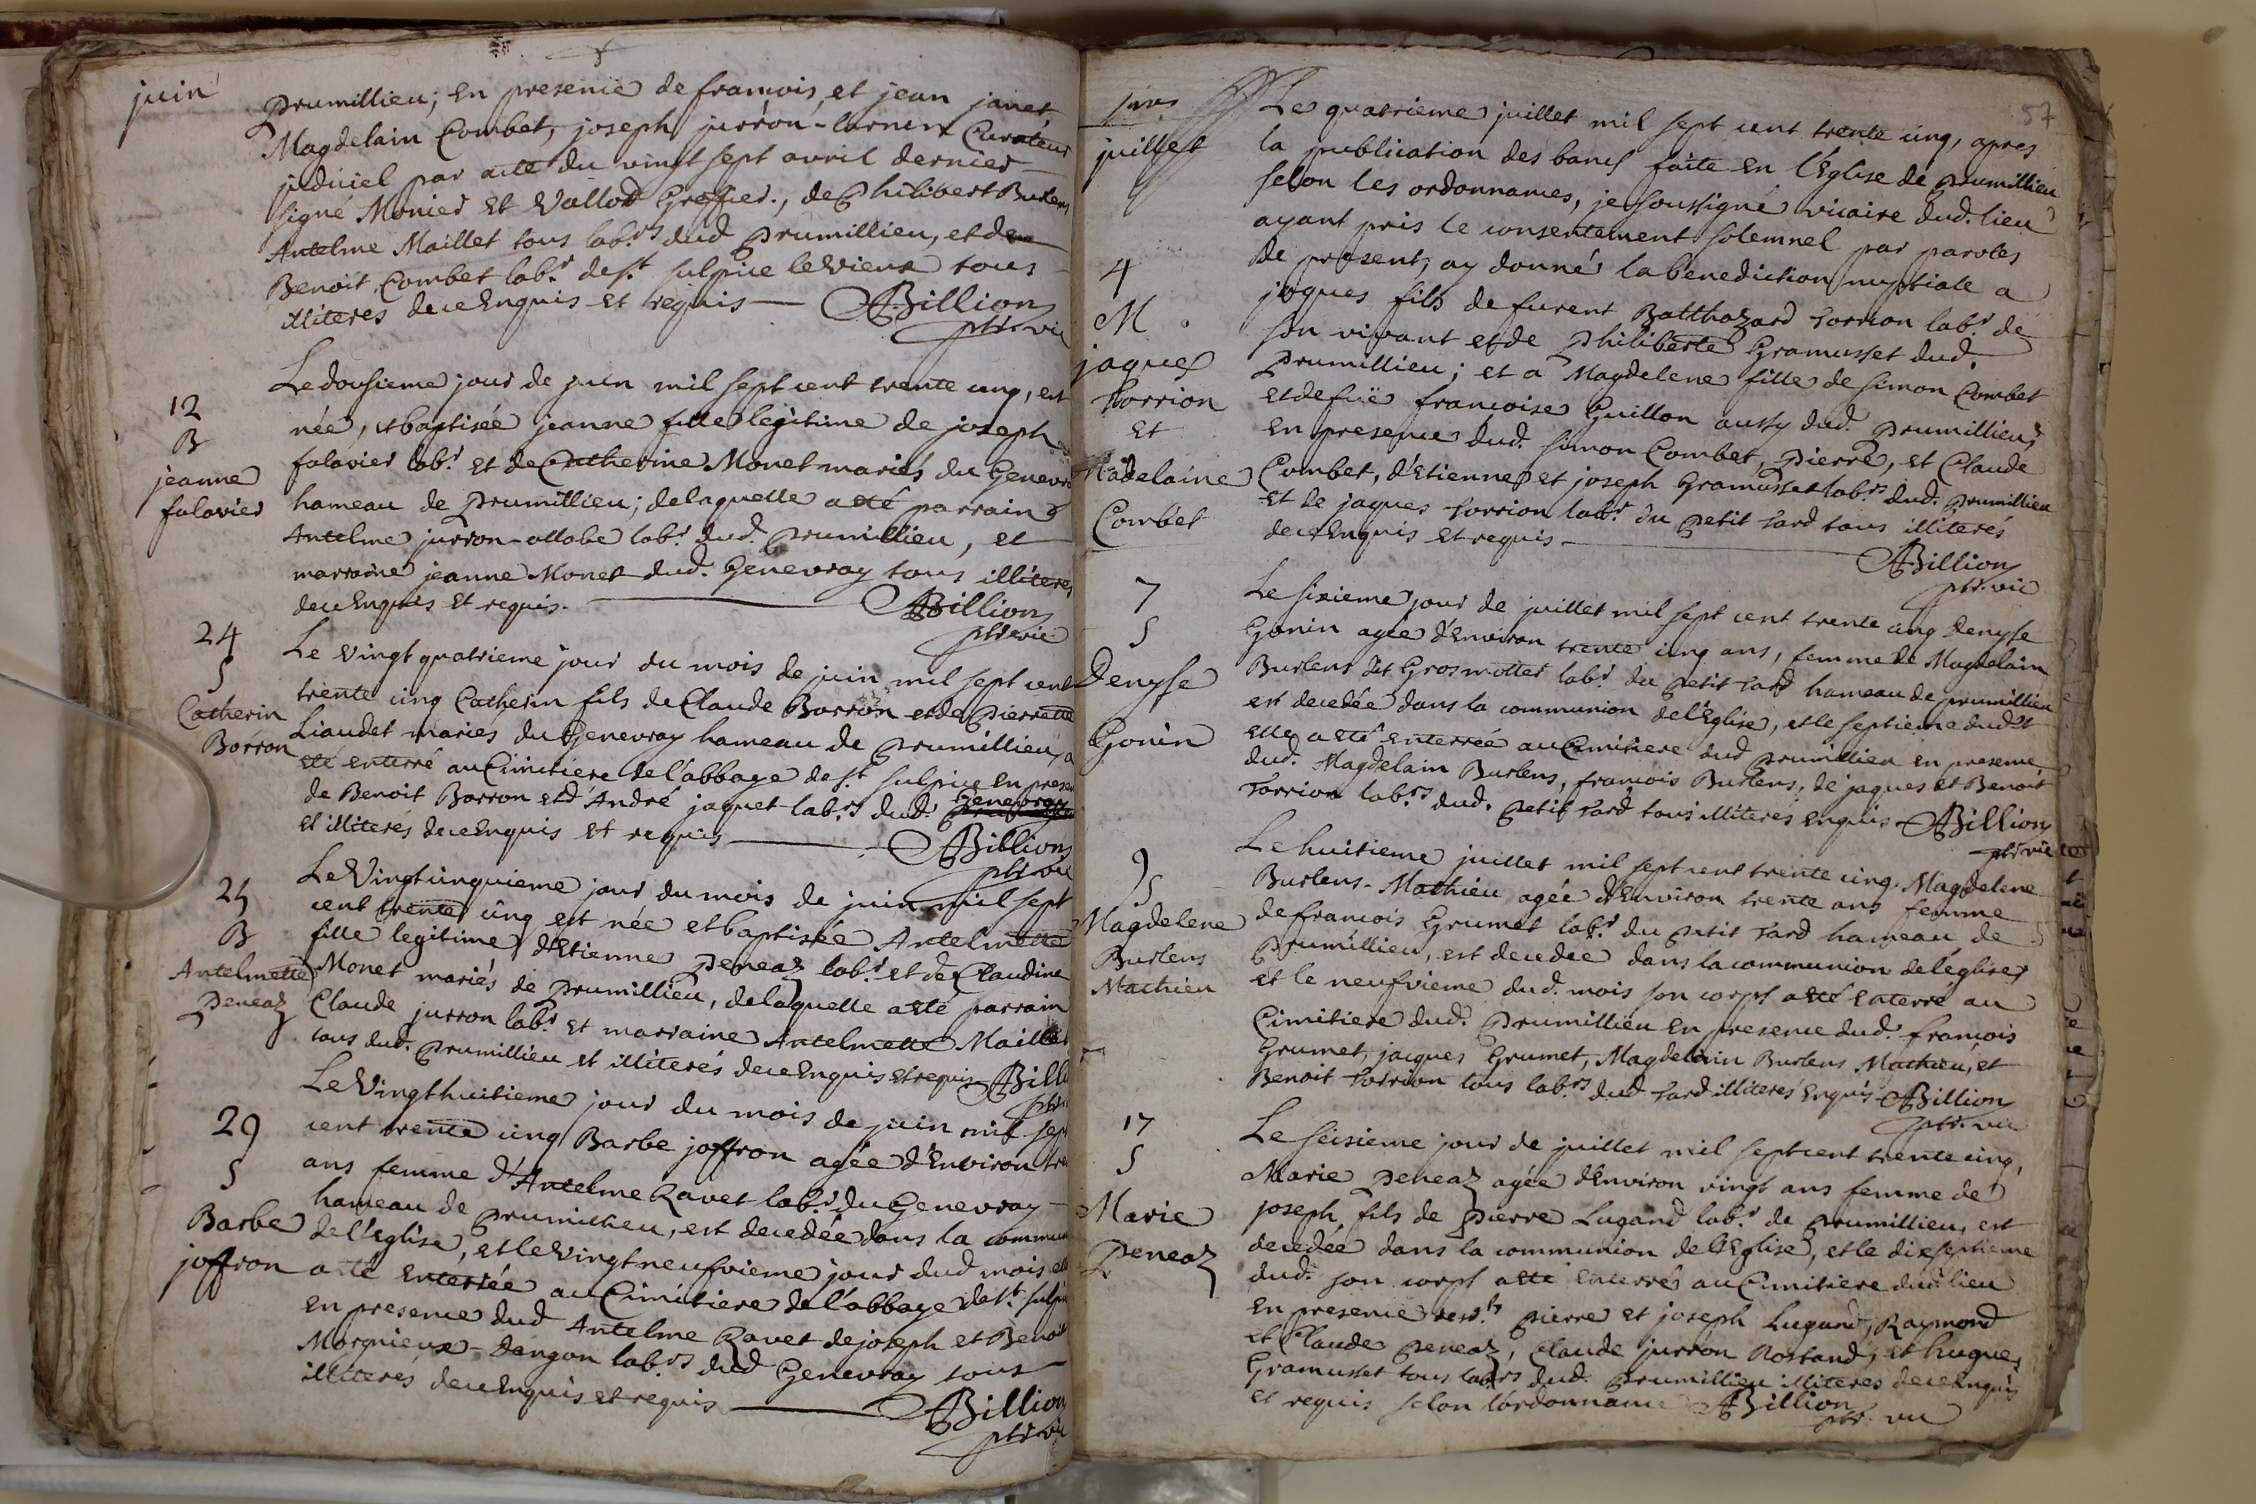 juin
Prumillieu; en presence de francois, et jean janet
Magdelain Combet, joseph jurron-larnera Curateur
judiciel par acte du vingt sept avril dernier
signé Monier et Vallod Greffier., de Philibert Burlens
Antelme Maillet tous labrs dud Prumillieu, et de
Benoit Combet labr de st sulpice le vieux tous
illiterés de ce Enquis et requis — ABillion
ptre vic
12
B
jeanne
falavier
Le dousieme jour de juin mil sept cent trente cinq, est
née, et baptisée jeanne fille legitime de joseph
falavier labr et de Catherine Monet mariés du Genevray
hameau de Prumillieu; de laquelle a eté parrain
Antelme jurron-allobe labr dud. Prumillieu, et
marraine jeanne Monet dud. Genevray tous illiterés
de ce Enquis et requis. — ABillion
ptre vic
24
S
Catherin
Borron
Le vingt quatrieme jour du mois de juin mil sept cent
trente cinq Catherin fils de Claude Borron et de Pierrette
Liaudet mariés du Genevray hameau de Prumillieu, a
eté enterré au Cimitiere de l'abbaye de st sulpice en presence
de Benoit Borron et d'André jaquet labrs dud. Genevray
et illiterés de ce Enquis et requis — ABillion
ptre vic
25
B
Antelmette
Peneaz
Le Vingt cinquieme jour du mois de juin mil sept
cent trente cinq est née et baptisée Antelmette
fille legitime d'Etienne Peneaz labr et de Claudine
Monet mariés de Prumillieu, de laquelle a eté parrain
Claude jurron labr et marraine Antelmette Maillet
tous dud. Prumillieu et illiterés de ce Enquis et requis ABilli
ptre
29
S
Barbe
joffron
Le Vingt huitieme jour du mois de juin mil sept
cent trente cinq Barbe joffron agée d'Environ tre
ans femme d'Antelme Ravet labr du Genevray
hameau de Prumillieu, est decedée dans la commun
de l'Eglise, et le Vingt neufvieme jour dud mois elle
a eté Enterrée au Cimitiere de l'abbaye de st sulpi
en presence dud Antelme Ravet de joseph et Benoit
Morgnieux-dangon labrs dud Genevray tous
illiterés de ce Enquis et requis — ABillion
ptre vic
57
juillet
4
M
jaques
torrion
et
Madelaine
Combet
Le quatrieme juillet mil sept cent trente cinq, apres
la publication des bancs faite en l'Eglise de Prumillieu
selon les ordonnances, je soussigné vicaire dud. lieu
ayant pris le consentement solemnel par paroles
de present, ay donné la benediction nuptiale a
jaques fils de furent Balthazard torrion labr de
son vivant et de Philiberte Gramusset dud.
Prumillieu; et a Magdelene fille de simon Combet
et de fuë francoise Guillon aussy dud. Prumillieu,
en presence dud. simon Combet, Pierre, et Claude
Combet, d'Etienne et joseph Gramusset labrs dud. Prumillieu
et de jaques torrion labr du Petit tard tous illiterés
de ce Enquis et requis — ABillion
ptre vic
7
S
Denyse
Gonin
Le sixieme jour de juillet mil sept cent trente cinq Denyse
Gonin agée d'Environ trente cinq ans, femme de Magdelain
Burlens dit Grosmottet labr du Petit tard hameau de prumillieu
est decedée dans la communion de l'Eglise, et le septieme dud.
elle a eté enterrée au Cimitiere dud Prumillieu en presence
dud. Magdelain Burlens, francois Burlens, de jaques et Benoit
torrion labrs dud. Petit tard tous illiterés enquis ABillion
ptre vic
9
S
Magdelene
Burlens
Mathieu
Le huitieme juillet mil sept cent trente cinq. Magdelene
Burlens-Mathieu agée d'Environ trente ans femme
de francois Grumet labr du Petit tard hameau de
Prumillieu, est decedée dans la communion de l'eglise,
et le neufvieme dud. mois son corps a eté enterré au
Cimitiere dud. Prumillieu en presence dud. francois
Grumet, jacques Grumet, Magdelain Burlens Mathieu, et
Benoit torrion tous labrs dud tard illiterés Enquis ABillion
ptre vic
17
S
Marie
Peneaz
Le seisieme jour de juillet mil sept cent trente cinq,
Marie Peneaz agée d'Environ vingt ans femme de
joseph fils de Pierre Lugand labr de Prumillieu, est
decedée dans la communion de l'Eglise, et le dixseptieme
dud. son corps a eté enterré au Cimitiere dud. lieu
en presence desds Pierre et joseph Lugand, Raymond
et Claude Peneaz, Claude jurron Rostand, et hugues
Gramusset tous labrs dud. Prumillieu illiterés de ce Enquis
et requis selon l'ordonnance ABillion
ptre vic